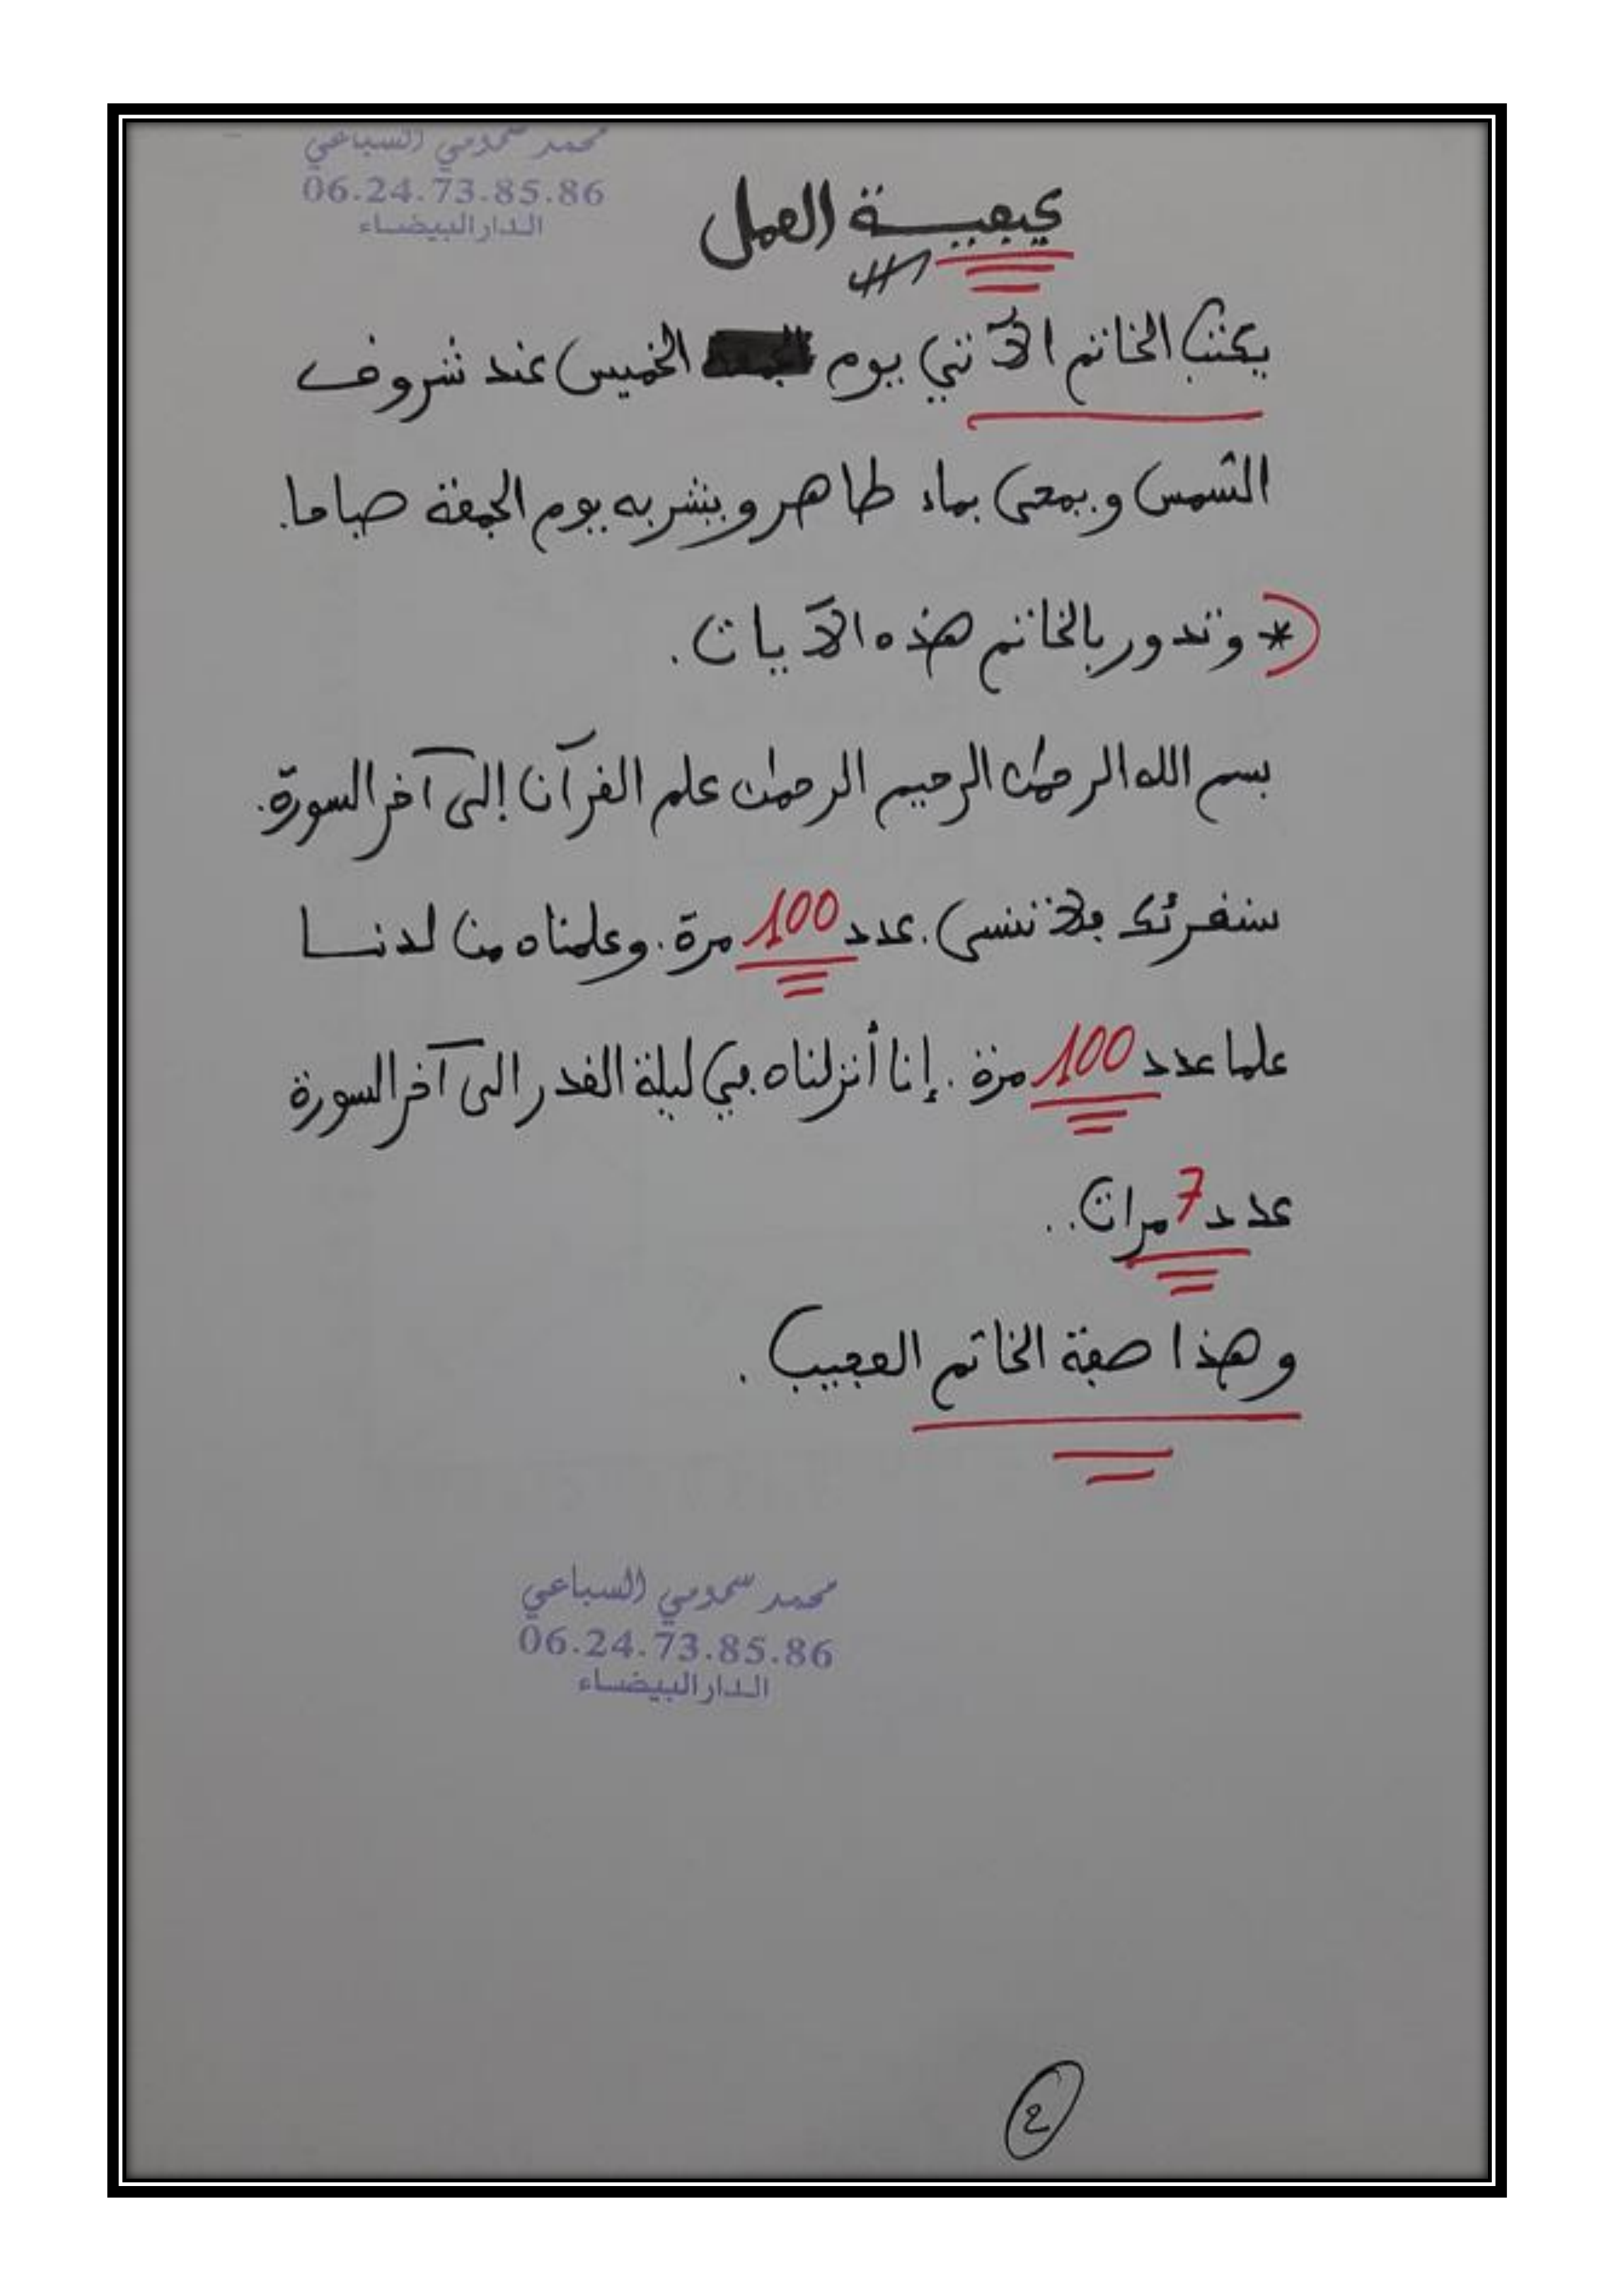 محمد سحومي السباعي
06.24.73.85.86
الدار البيضاء
كيفية العمل
يكتب الخاتم الآتي يوم الخميس عند شروق
الشمس ويمحى بماء طاهر ويشربه يوم الجمعة صباحا.
* وتدور بالخاتم هذه الآيات.
بسم الله الرحمان الرحيم الرحمان علم القرآن إلى آخر السورة.
سنقرئك فلا تنسى. عدد 100 مرة. وعلمناه من لدنا
علما عدد 100 مرة. إنا أنزلناه في ليلة القدر الى آخر السورة
عدد 7 مرات..
وهذا صفة الخاتم العجيب.
محمد سحومي السباعي
06.24.73.85.86
الدار البيضاء
2